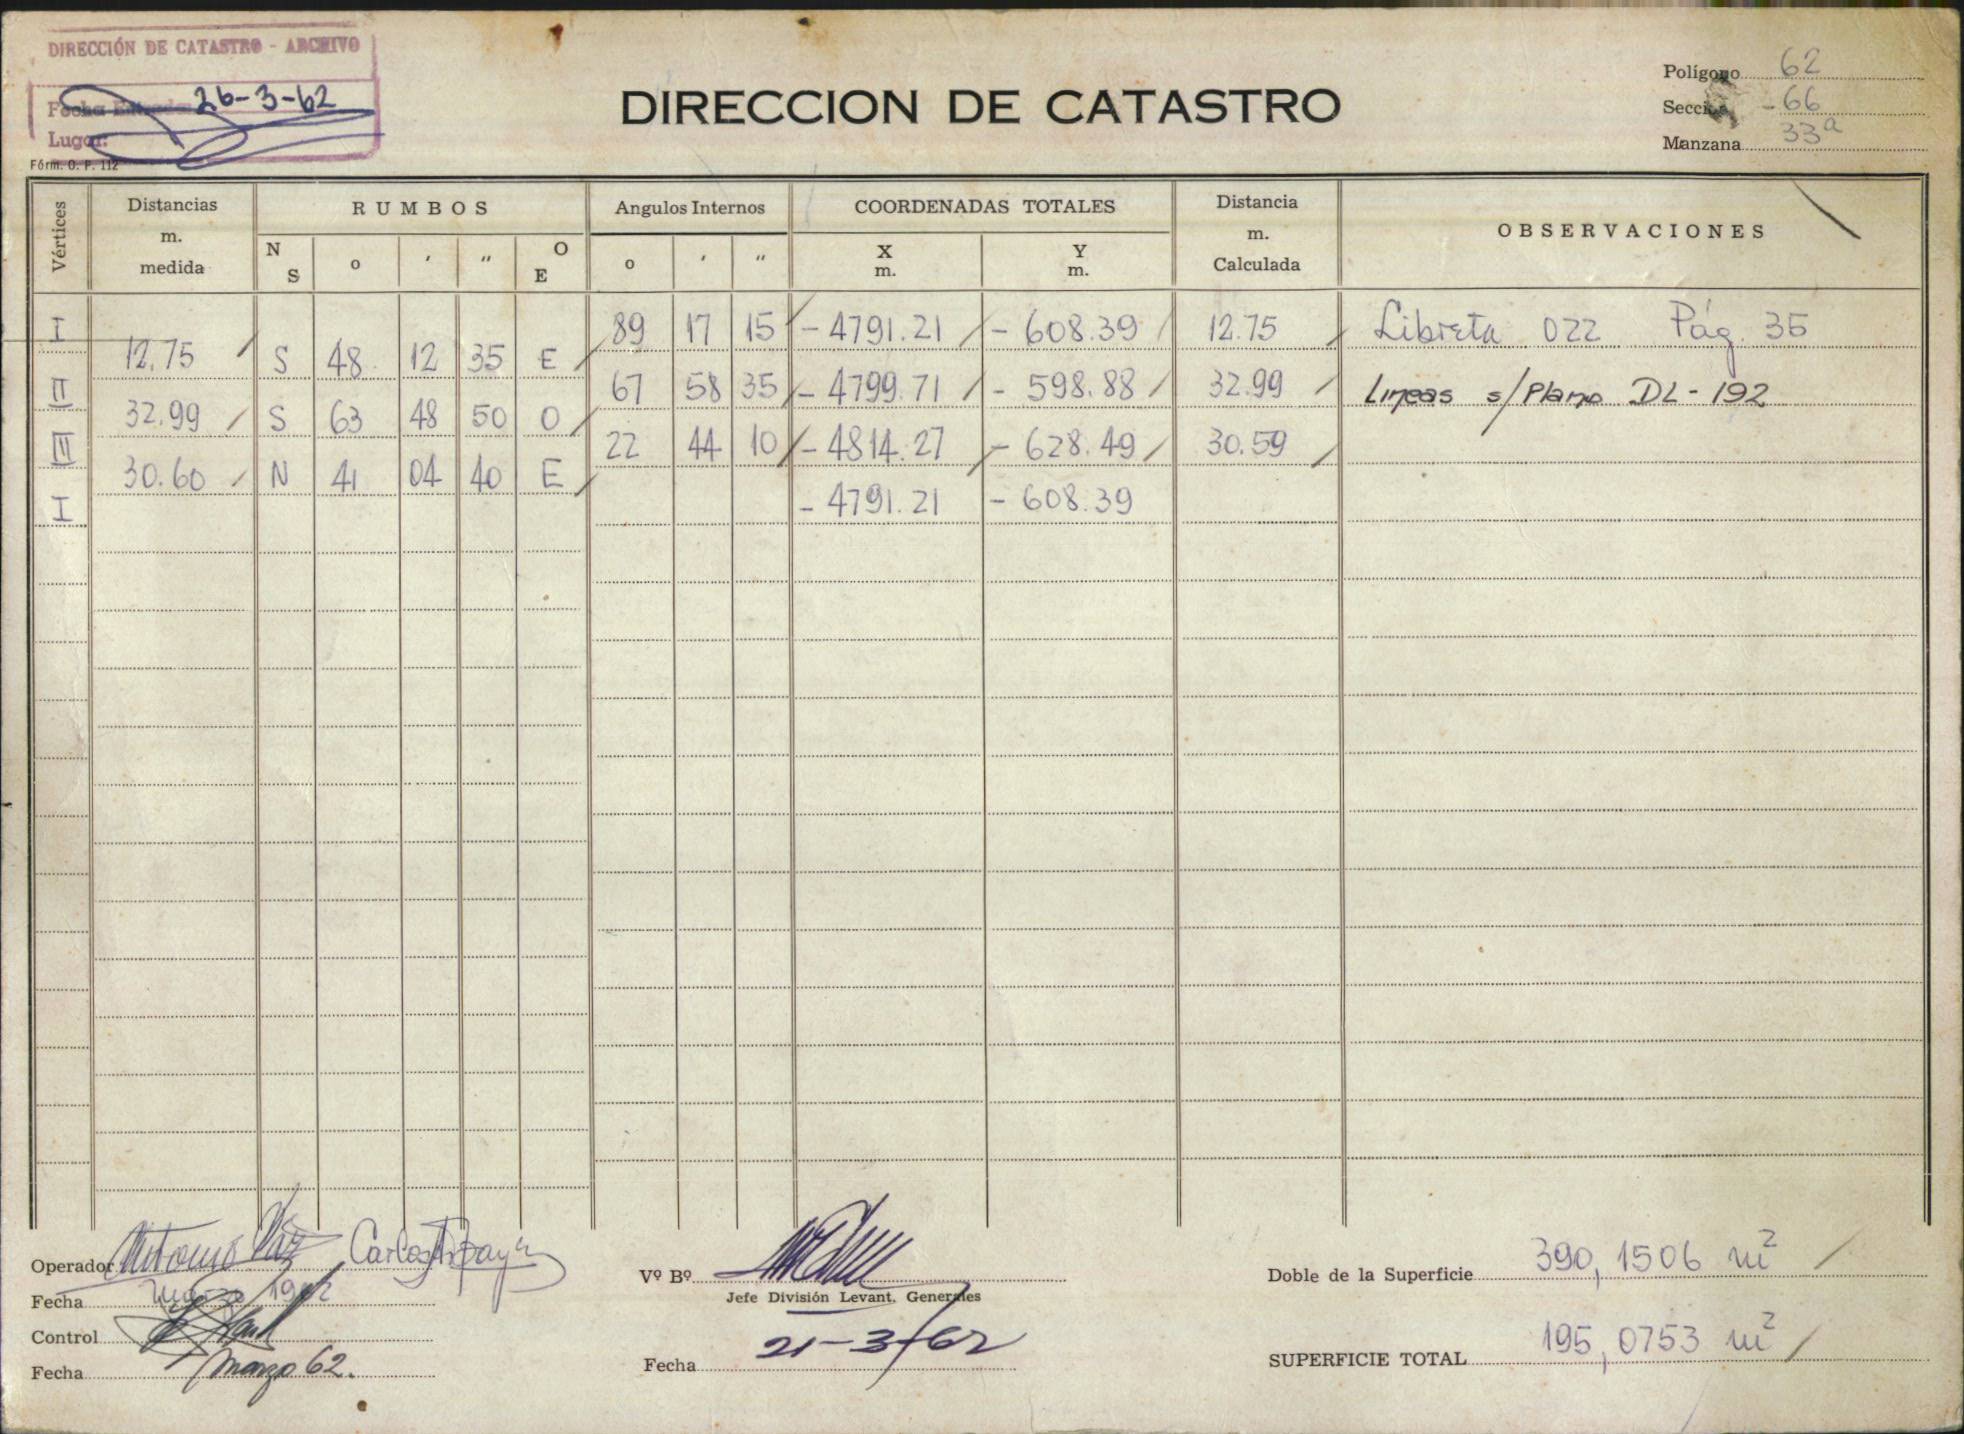 DIRECCIÓN DE CATASTRO - ARCHIVO
Fecha 26-3-62
Lugar:
Fórm. O. P. 112
DIRECCION DE CATASTRO
Polígono 62
Sección -66
Manzana 33ª
Vértices
Distancias m. medida
RUMBOS
N S o ′ ″ O E
Angulos Internos
o ′ ″
COORDENADAS TOTALES
X m. Y m.
Distancia m. Calculada
OBSERVACIONES
I 89 17 15 - 4791.21 - 608.39 12.75 Libreta 022 Pág. 35
12.75 S 48 12 35 E
II 67 58 35 - 4799.71 - 598.88 32.99 Lineas s/Plano DL-192
32.99 S 63 48 50 O
III 22 44 10 - 4814.27 - 628.49 30.59
30.60 N 41 04 40 E
I - 4791.21 - 608.39
Operador Antonio
Carlos
Fecha Marzo 1962
Control
Fecha marzo 62.
Vº Bº
Jefe División Levant. Generales
Fecha 21-3-62
Doble de la Superficie 390,1506 m²
SUPERFICIE TOTAL 195,0753 m²